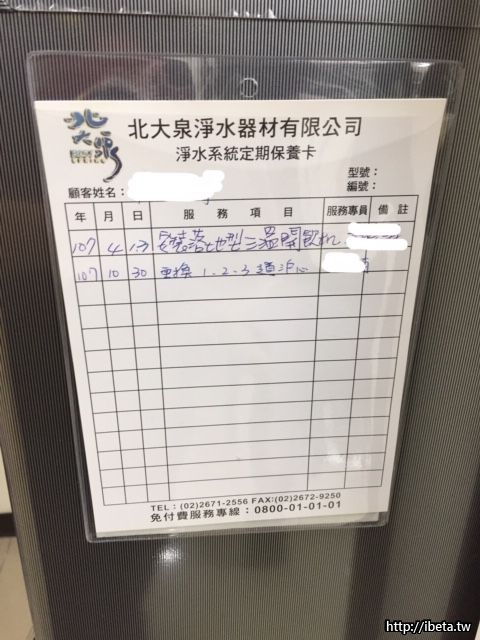 北大泉
北大泉淨水器材有限公司
淨水系統定期保養卡
型號：
顧客姓名：
編號：
年 月 日 服務項目 服務專員 備註
107 4 13 安裝落地型三溫開飲机
107 10 30 更換1.2.3道沪心
TEL：(02)2671-2556 FAX:(02)2672-9250
免付費服務專線：0800-01-01-01
http://ibeta.tw